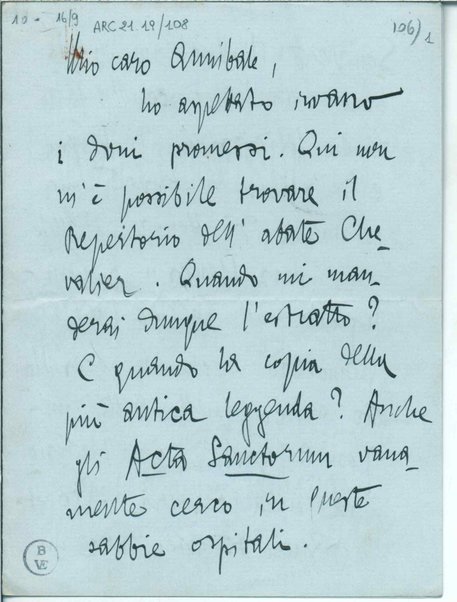 10 - 16/9 ARC 21 19/108 106) 1
Mio caro Annibale,
ho aspettato invano
i doni promessi. Qui non
m'è possibile trovare il
Repertorio dell' abate Che-
valier. Quando mi man-
derai dunque l'estratto?
E quando la copia della
più antica leggenda? Anche
gli Acta Sanctorum vana-
mente cerco in queste
sabbie ospitali.
B
VE